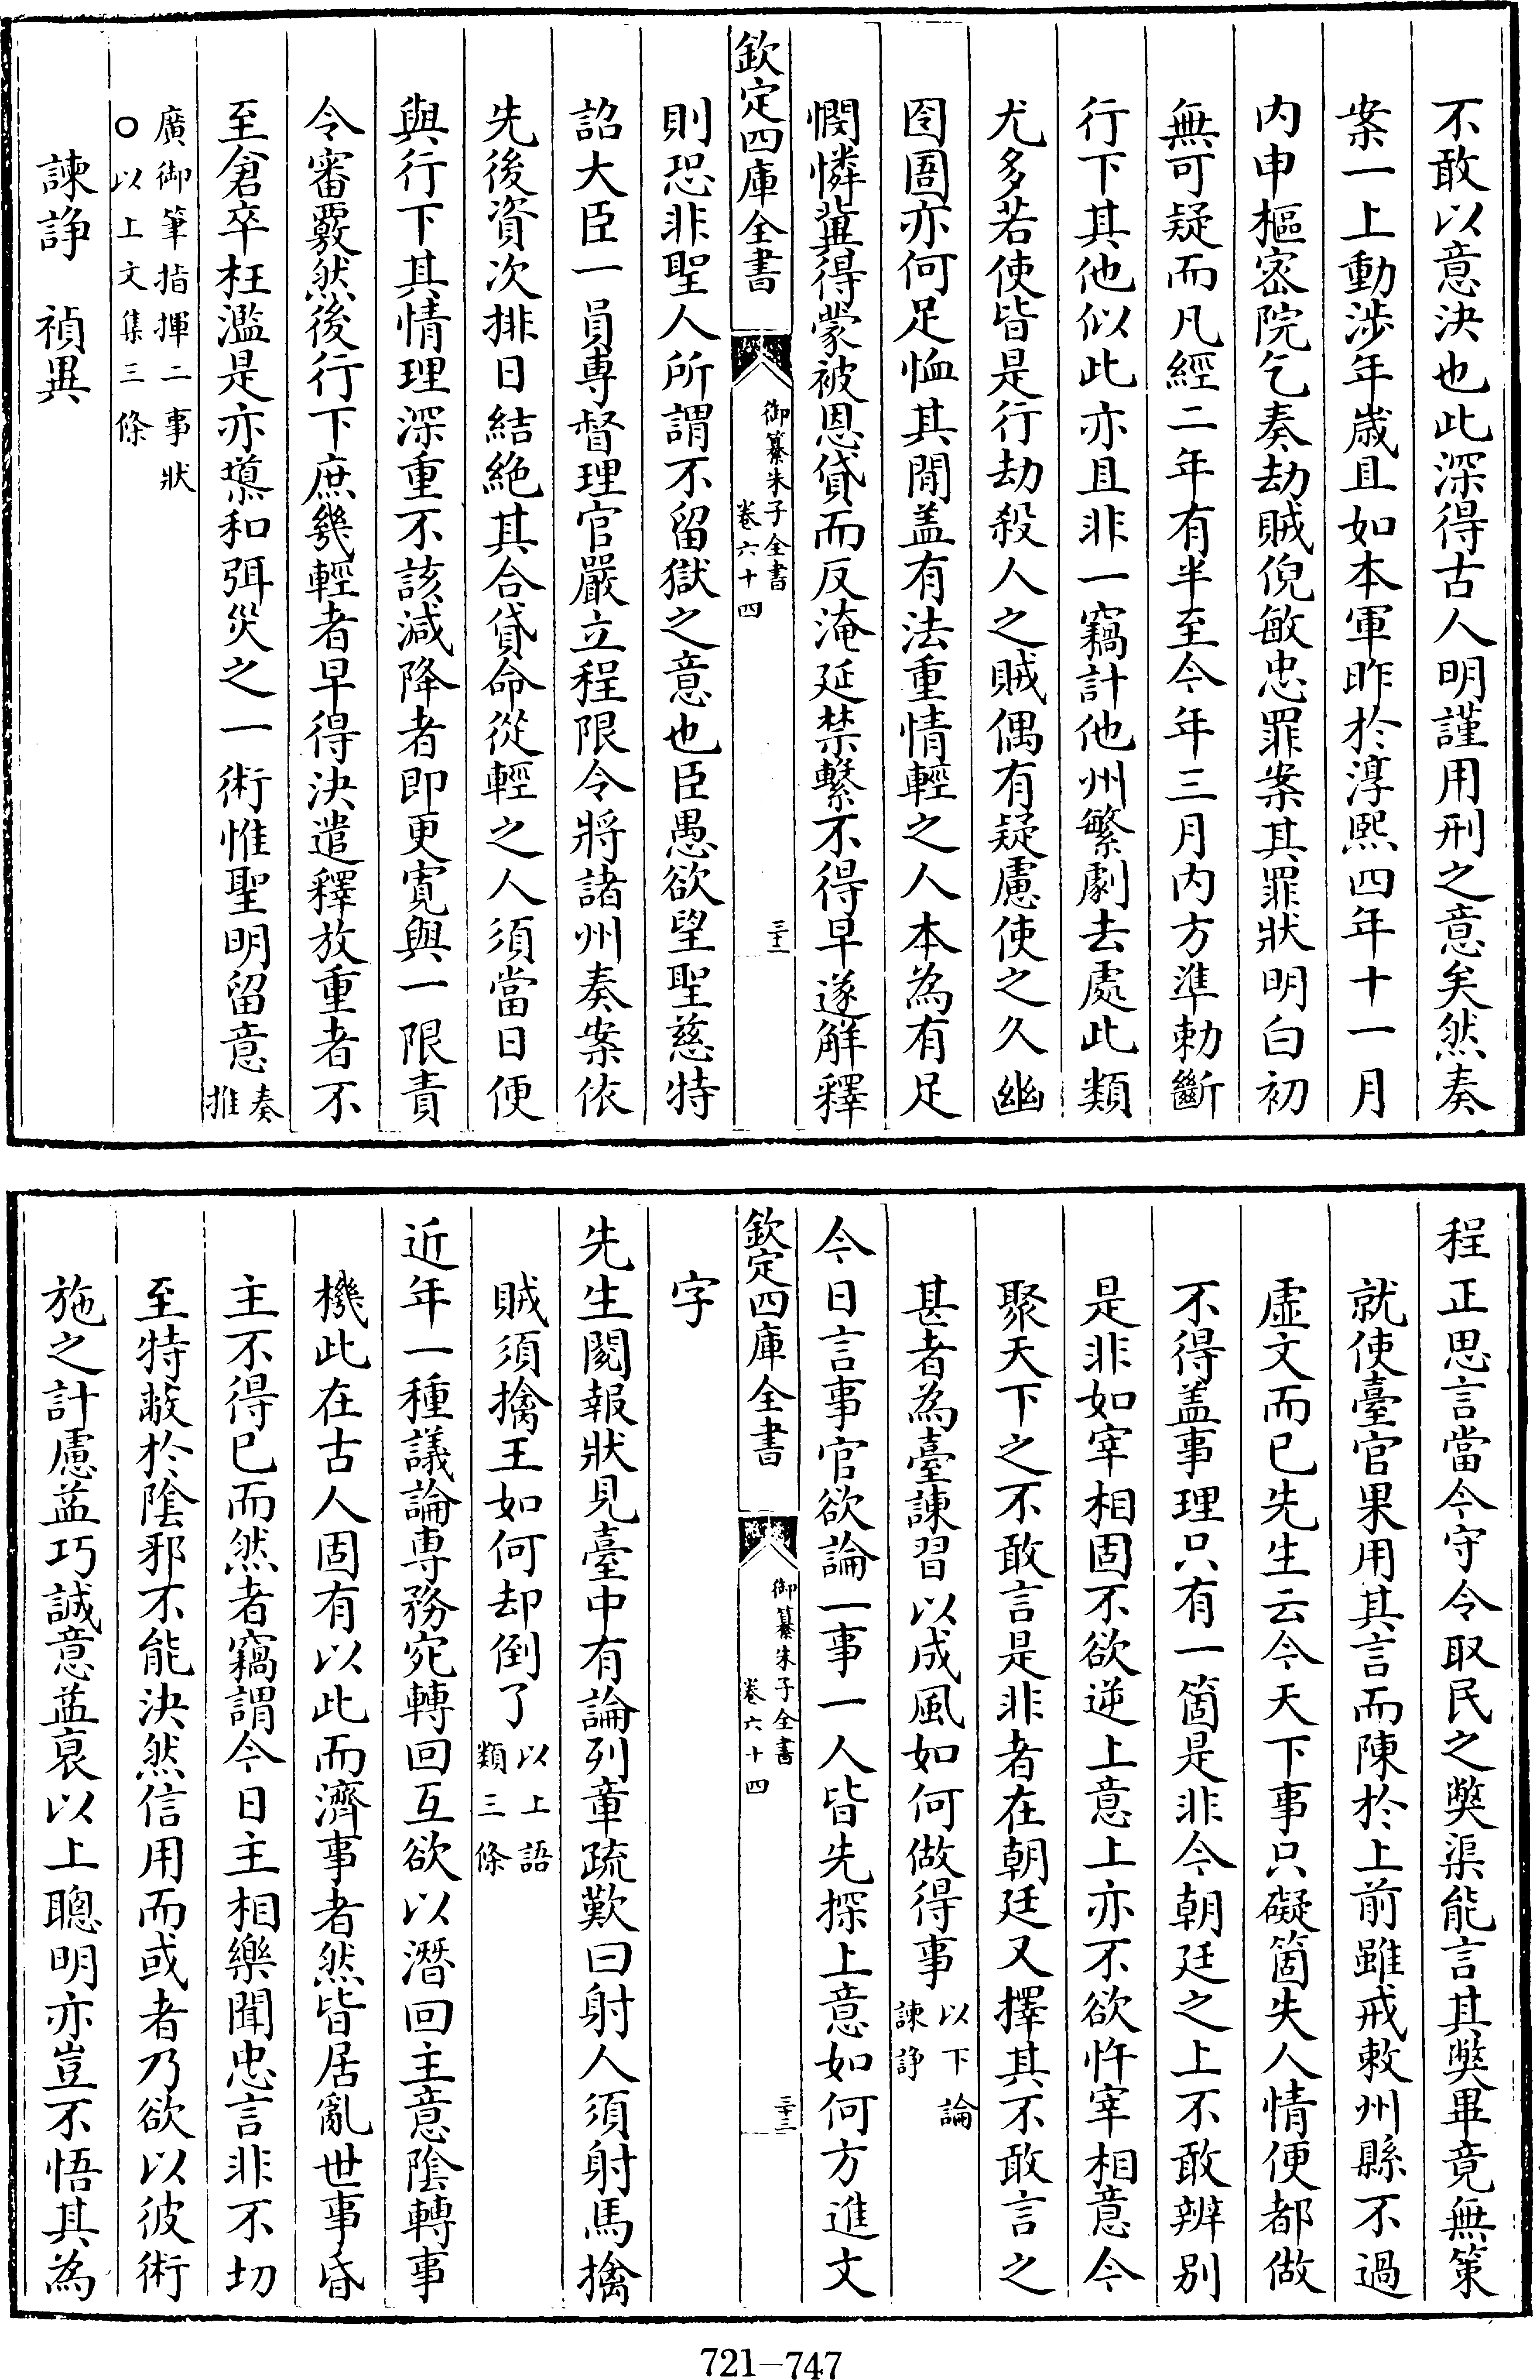 不敢以意決也此深得古人明謹用刑之意矣然奏
案一上動涉年嵗且如本軍昨於淳熙四年十一月
内申樞宻院乞奏劫賊倪敏忠罪案其罪狀明白初
無可疑而凡經二年有半至今年三月内方準勅斷
行下其他似此亦且非一竊計他州繁劇去處此類
尤多若使皆是行劫殺人之賊偶有疑慮使之久幽
囹圄亦何足恤其間盖有法重情輕之人本為有足
憫憐冀得蒙被恩貸而反淹延禁繫不得早遂解釋
欽定四庫全書
御纂朱子全書
卷六十四
三十二
則恐非聖人所謂不留獄之意也臣愚欲望聖慈特
詔大臣一員專督理官嚴立程限令將諸州奏案依
先後資次排日結絶其合貸命從輕之人須當日便
與行下其情理深重不該減降者即更寛與一限責
令審覈然後行下庶㡬輕者早得決遣釋放重者不
至倉卒枉濫是亦導和弭災之一術惟聖明留意奏推
廣御筆指揮二事狀
○以上文集三條
諫諍　禎異
程正思言當今守令取民之弊渠能言其弊畢竟無策
就使臺官果用其言而陳於上前雖戒敕州縣不過
虛文而已先生云今天下事只礙箇失人情便都做
不得盖事理只有一箇是非今朝廷之上不敢辨別
是非如宰相固不欲逆上意上亦不欲忤宰相意今
聚天下之不敢言是非者在朝廷又擇其不敢言之
甚者為臺諫習以成風如何做得事以下論諫諍
今日言事官欲論一事一人皆先探上意如何方進文
欽定四庫全書
御纂朱子全書
卷六十四
三十三
字
先生閱報狀見臺中有論列章疏歎曰射人須射馬擒
賊須擒王如何却倒了以上語類三條
近年一種議論專務宛轉回互欲以潛回主意陰轉事
機此在古人固有以此而濟事者然皆居亂世事昏
主不得已而然者竊謂今日主相樂聞忠言非不切
至特蔽於陰邪不能決然信用而或者乃欲以彼術
施之計慮益巧誠意益衰以上聰明亦豈不悟其為
721—747